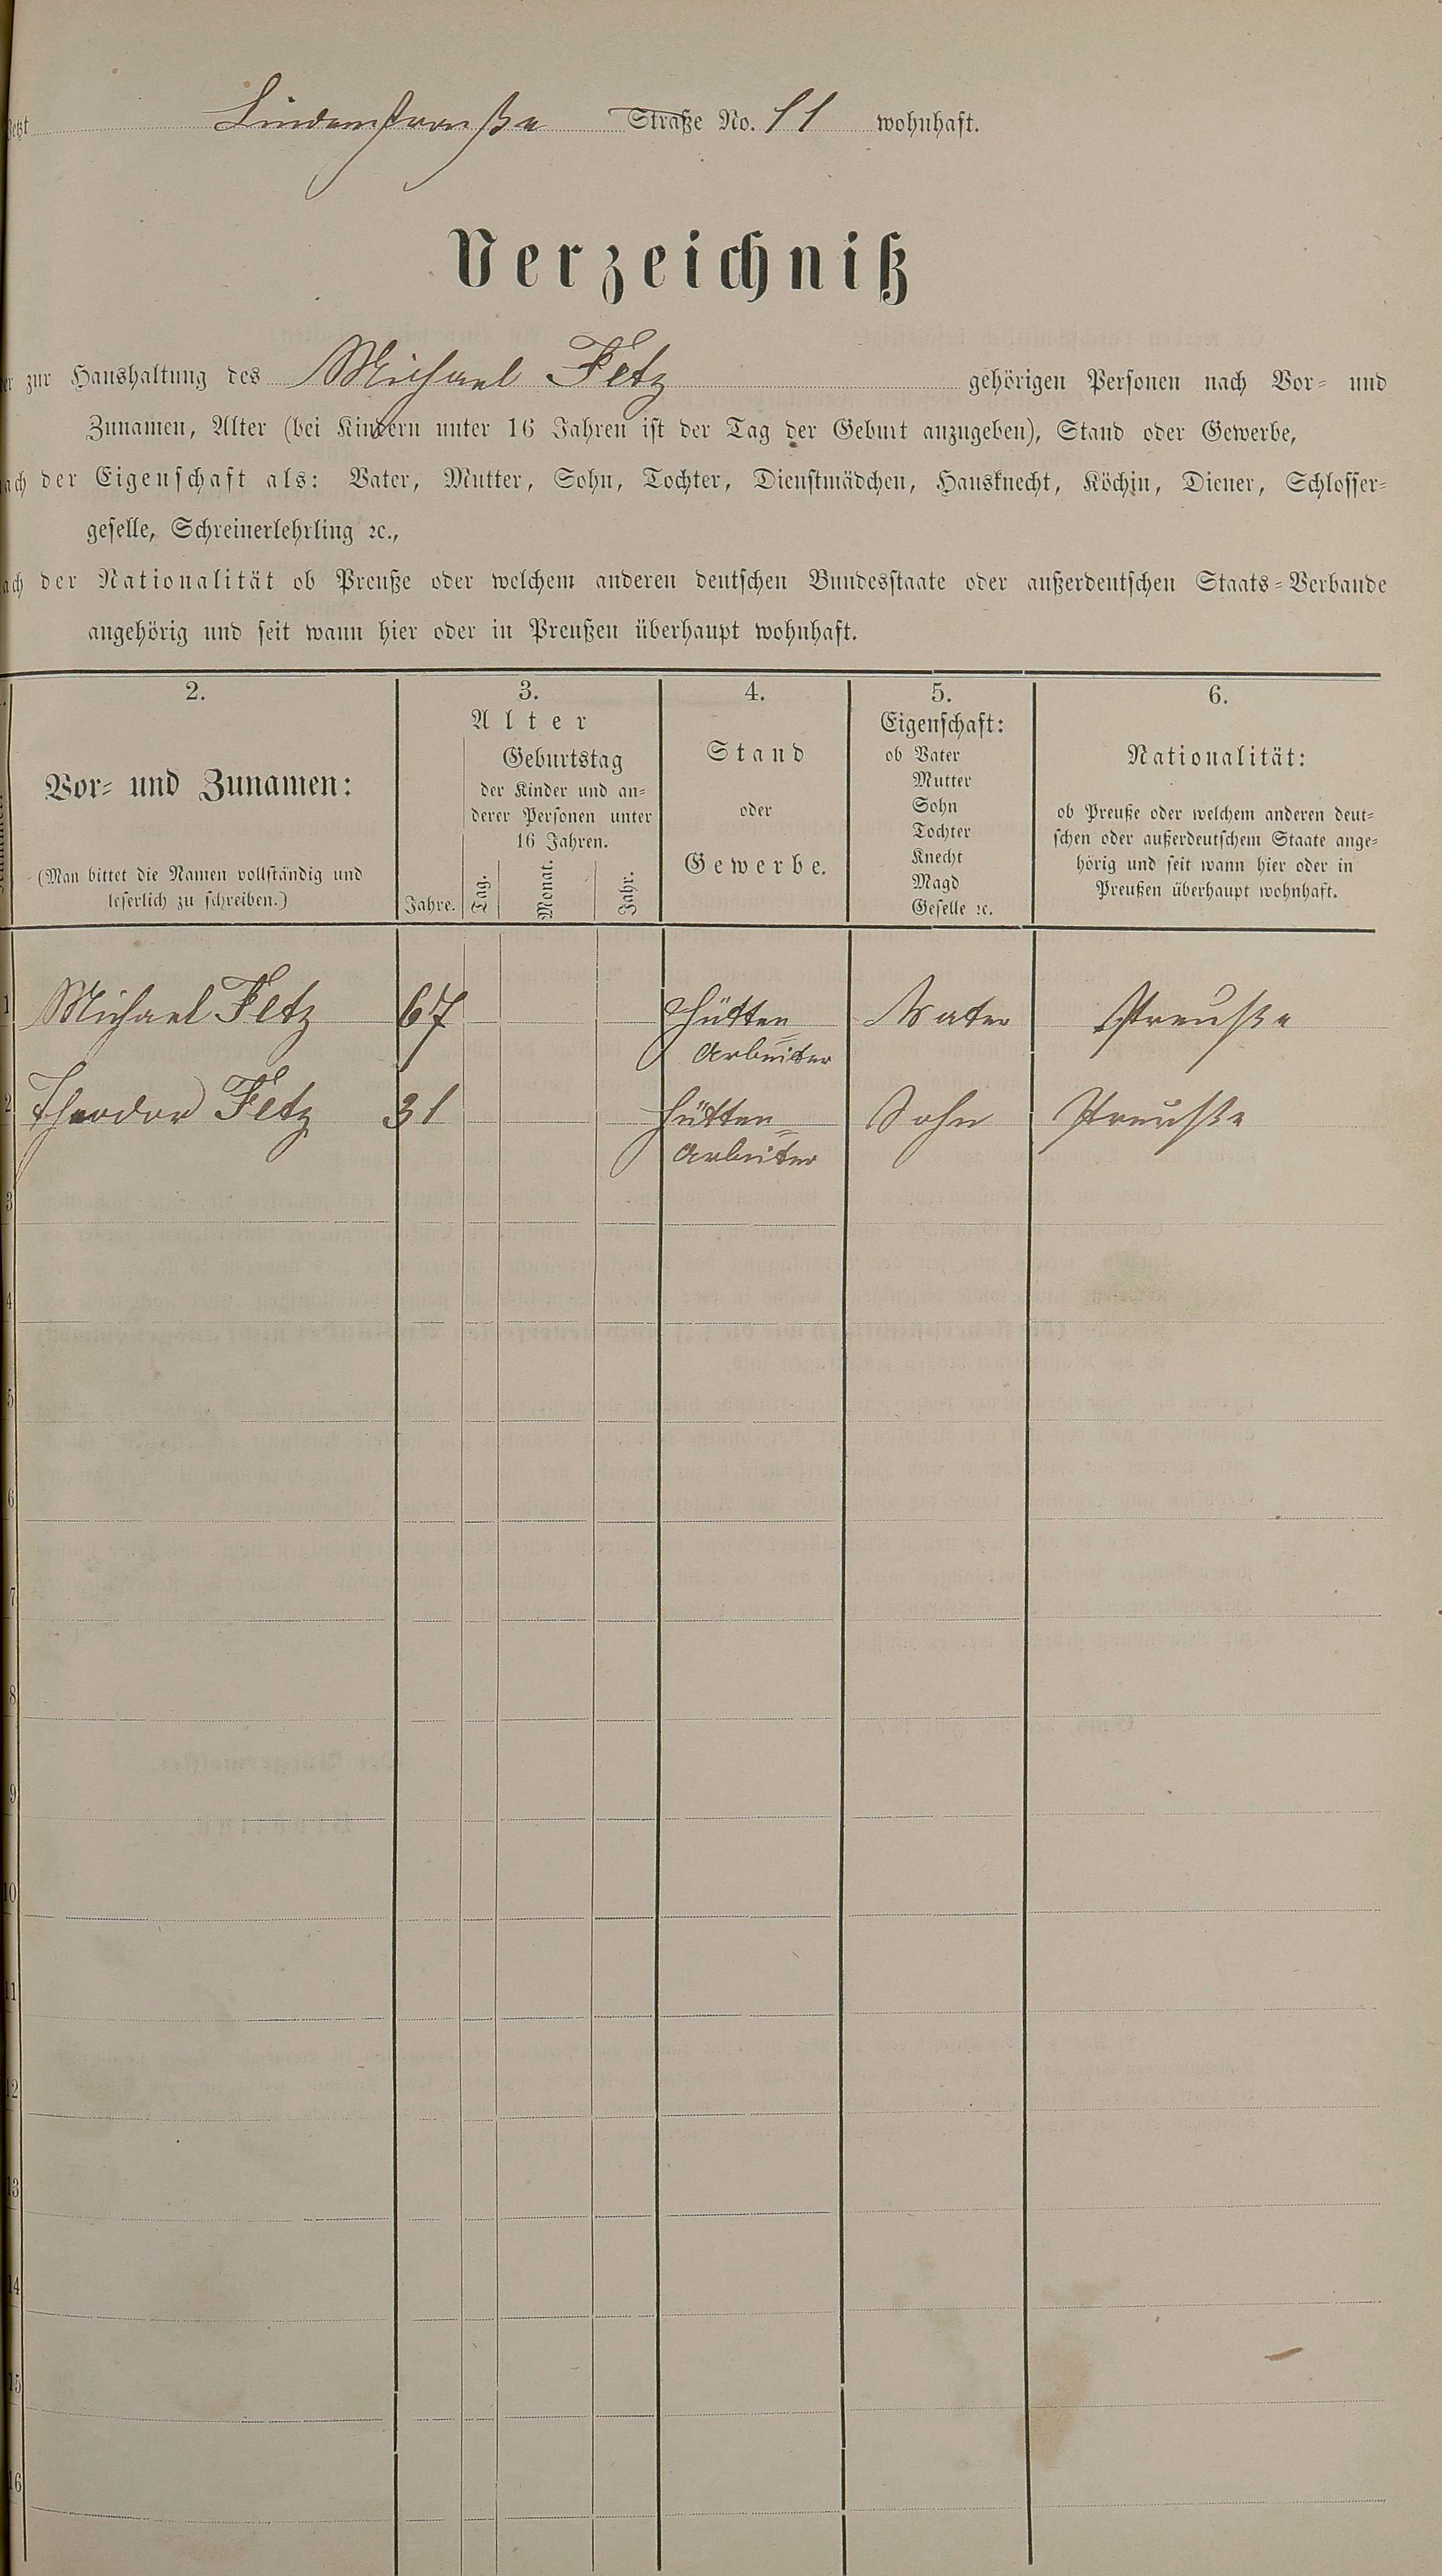 jetzt Lindenstraße Straße No. 11 wohnhaft.
Verzeichniß
er zur Haushaltung des Michael Fetz gehörigen Personen nach Vor- und
Zunamen, Alter (bei Kindern unter 16 Jahren ist der Tag der Geburt anzugeben), Stand oder Gewerbe,
ach der Eigenschaft als: Vater, Mutter, Sohn, Tochter, Dienstmädchen, Hausknecht, Köchin, Diener, Schlosser-
geselle, Schreinerlehrling ꝛc.,
ach der Nationalität ob Preuße oder welchem anderen deutschen Bundesstaate oder außerdeutschen Staats-Verbande
angehörig und seit wann hier oder in Preußen überhaupt wohnhaft.
2.
Vor- und Zunamen:
(Man bittet die Namen vollständig und
leserlich zu schreiben.)
3.
Alter
Jahre.
Geburtstag
der Kinder und an-
derer Personen unter
16 Jahren.
Tag.
Monat.
Jahr.
4.
Stand
oder
Gewerbe.
5.
Eigenschaft:
ob Vater
Mutter
Sohn
Tochter
Knecht
Magd
Geselle ꝛc.
6.
Nationalität:
ob Preuße oder welchem anderen deut-
schen oder außerdeutschem Staate ange-
hörig und seit wann hier oder in
Preußen überhaupt wohnhaft.
1 Michael Fetz 67 Hütten Vater Preuße
Arbeiter
2 Theodor Fetz 31 Hütten= Sohn Preuße
Arbeiter
3
4
5
6
7
8
9
10
11
12
13
14
15
16